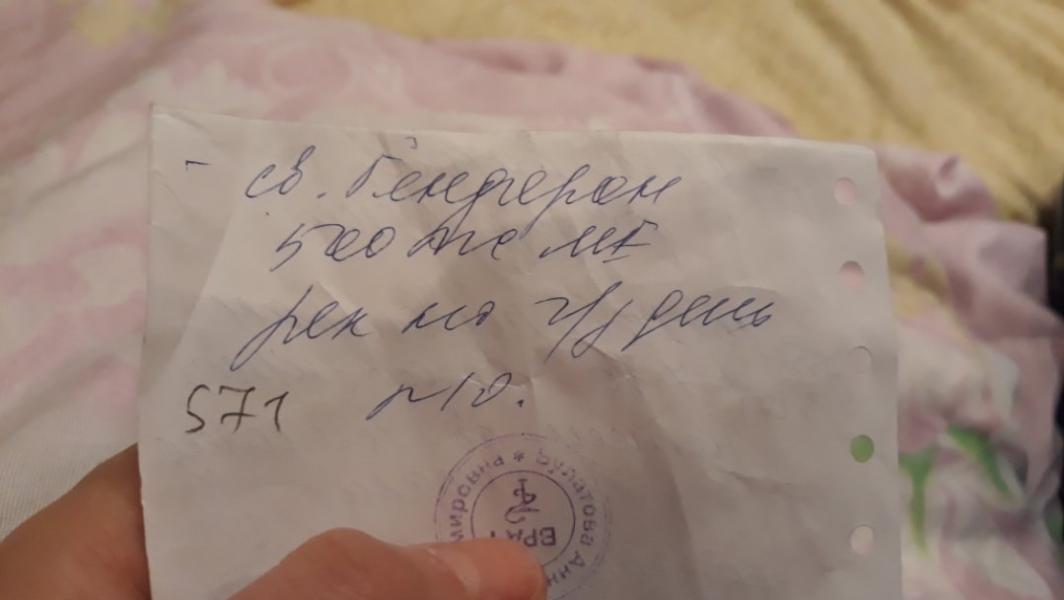 - св. Генферон
500 тыс МЕ
рек но ч/з день
571 №10.
мировна * Булатова Анн
ВРА